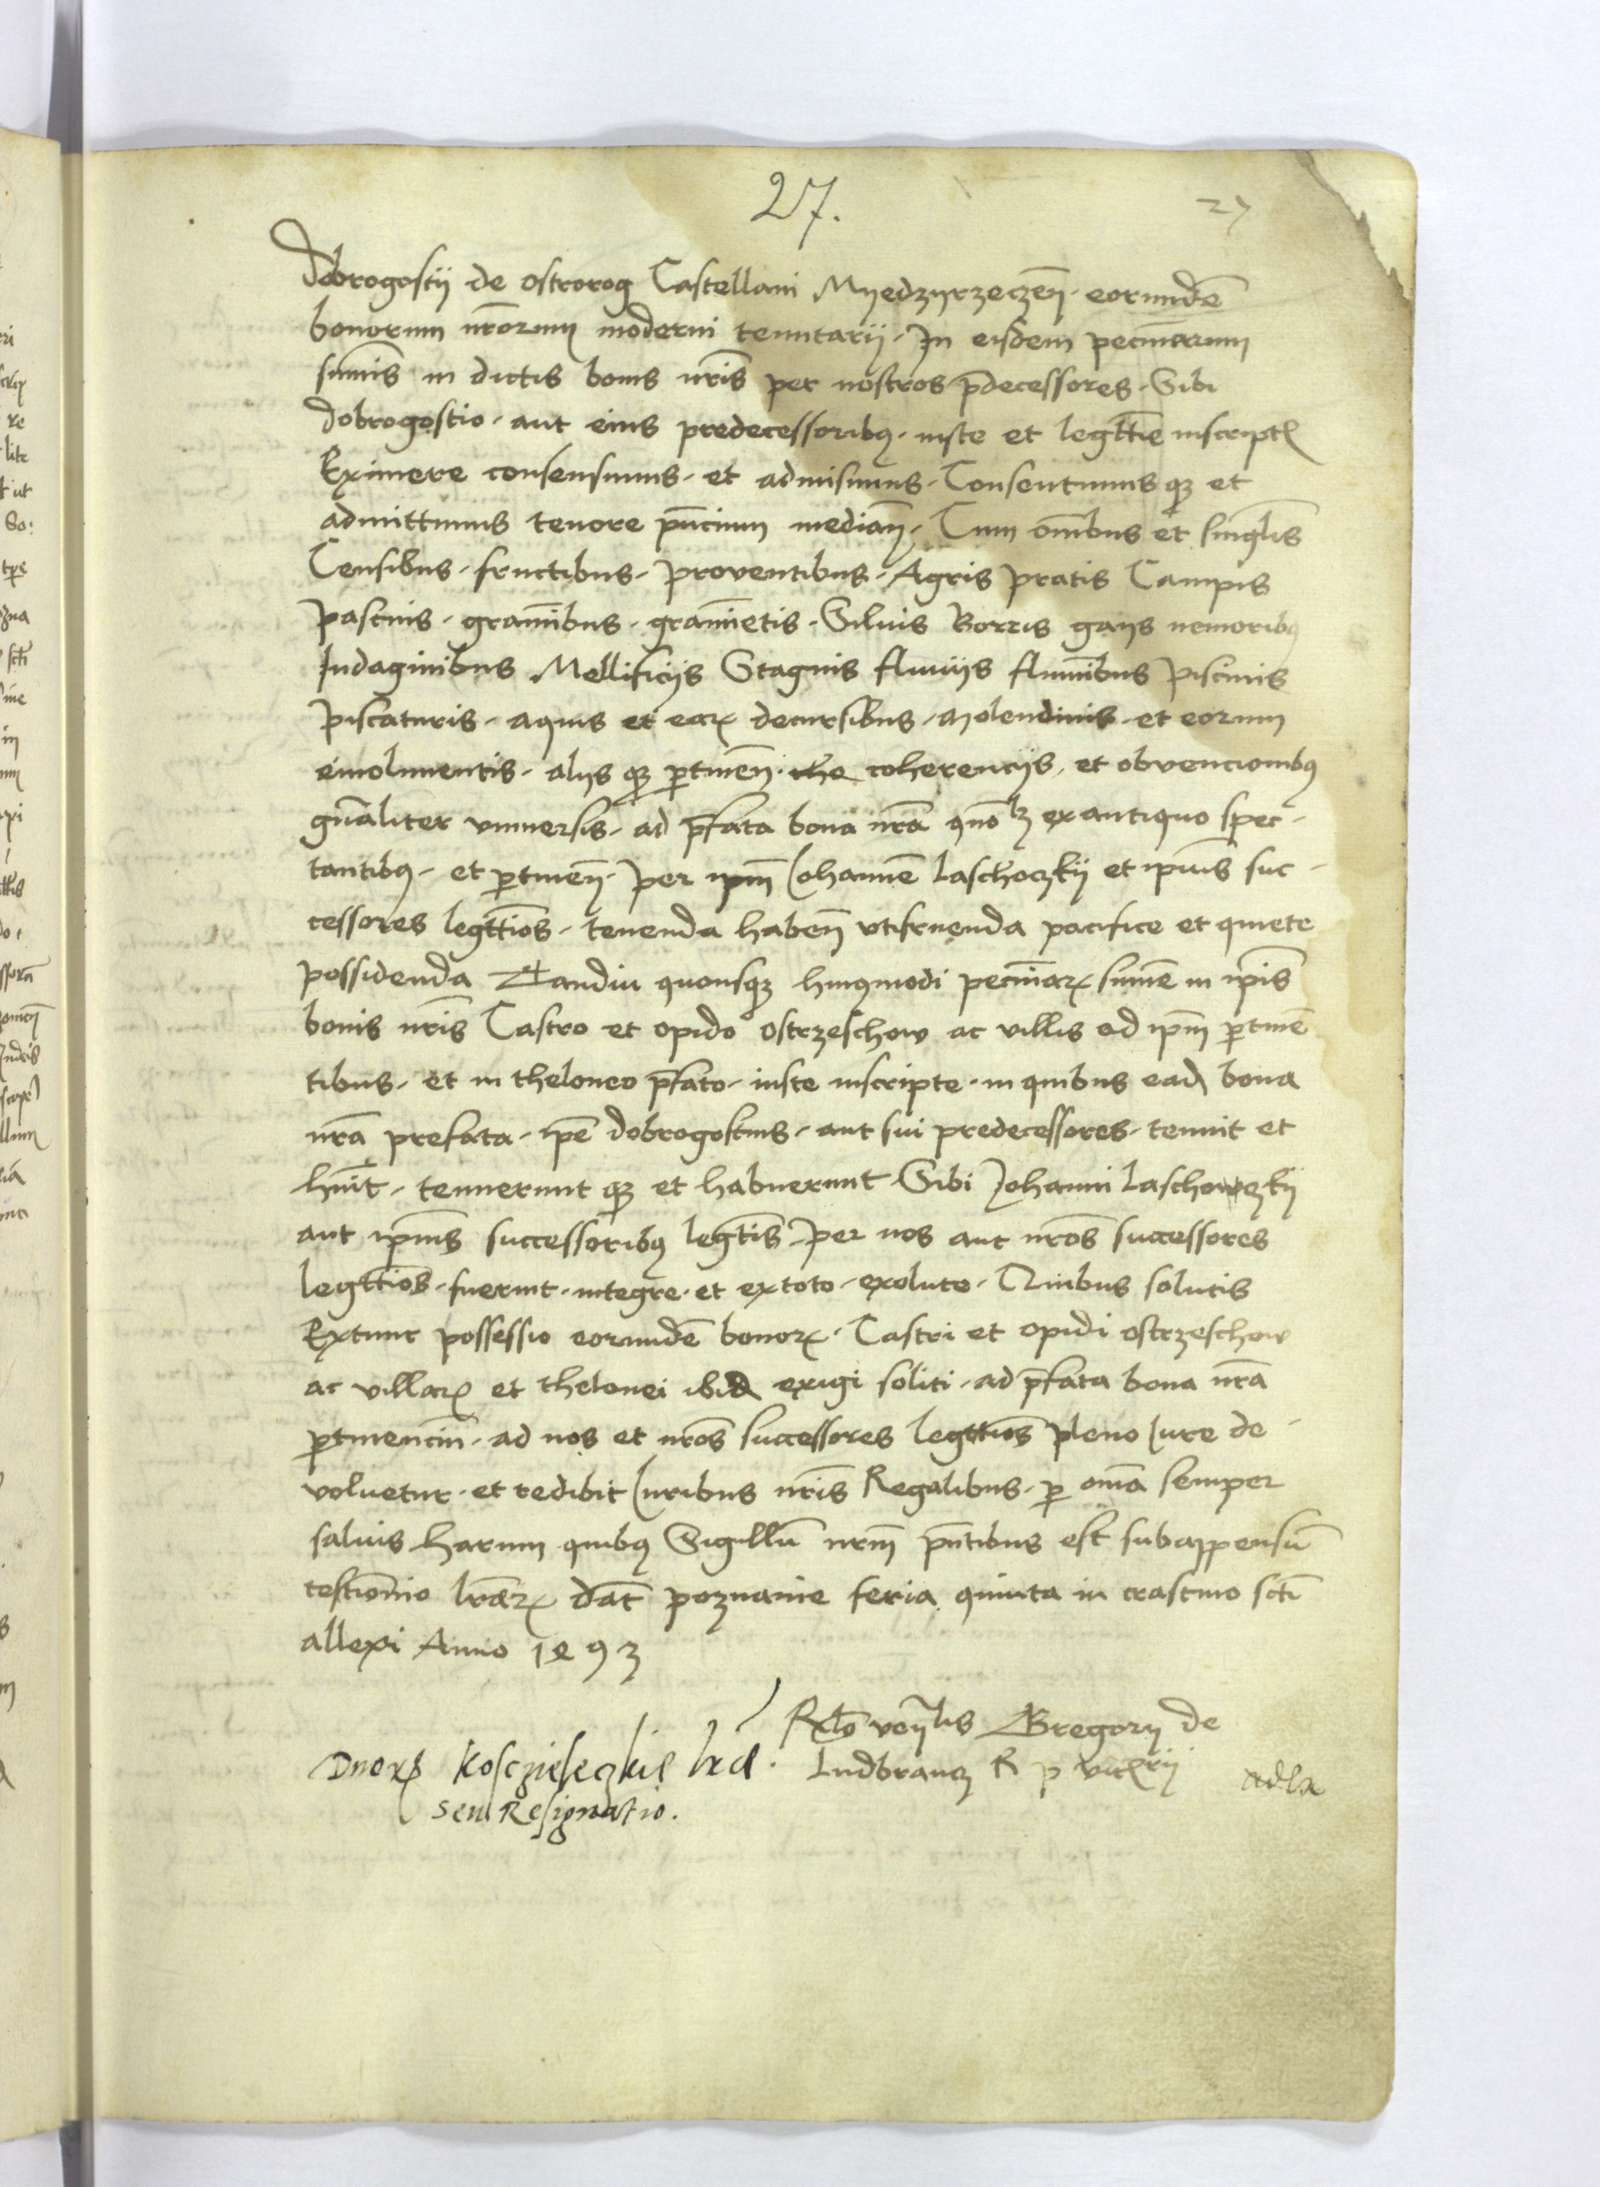 27.
27
Dobrogostii de ostrorog Castellani Myedzyrzeczeñ. eorundē
bonorum nr̄orum moderni tenutarii. In eisdem pecuniarum
summis in dictis bonis nr̄is per nostros p̄decessores. Sibi
Dobrogostio. aut eius predecessoribꝫ. iuste et legittīe inscriptꝭ
Eximere consensimus. et admisimus. Consentimus qꝫ et
admittimus tenore pn̄cium median̄. Cum om̄ibus et singl̄is
Censibus. fructibus. proventibus. Agris pratis Campis
pascuis. gram̄ibus. gram̄ietis. Siluis Borris gaiis nemoribꝫ
Indaginibus Mellificiis Stagnis fluuiis flumīibus piscinis
piscaturis. aquis et earꝝ decursibus. Molendinis. et eorum
emolumentis. aliis qꝫ ꝑtinen̄. the coherenciis. et obvencionibꝫ
gn̄aliter vniuersis. ad p̄fata bona nr̄a quō lꝫ ex antiquo spec-
tantibꝫ. et ꝑtinen̄. per ipm̄ Johannē Laschoczkii et ipius̄ suc-
cessores legttīos. tenenda haben̄ vtifruenda pacifice et quiete
possidenda Tandiu quousqꝫ huiꝰmodi pecuniarꝝ summe in ip̄is
bonis nr̄is Castro et opido Ostrzeschow ac villis ad ipm̄ ꝑtinē
tibus. et in theloneo p̄fato. iuste inscripte. in quibus eadꝫ bona
nr̄a prefata. ip̄e dobrogostius. aut sui predecessores. tenuit et
huīt. tenuerunt qꝫ et habuerunt Sibi Johanni Laschowczkii
aut ipīus successoribꝫ legtīs per nos aut nr̄os successores
legittīos. fuerint. integre. et ex toto. exolute. Quibus solutis
Extunc possessio eorundē bonorꝝ. Castri et opidi ostrzeschow
ac villarꝝ et thelonei ibidꝫ exigi soliti. ad p̄fata bona nr̄a
ꝑtinenciū. ad nos et nr̄os successores legttīos pleno Jure de-
voluetur. et redibit Juribus nr̄is Regalibus. ꝑ om̄a semper
saluis harum quibꝫ Sigillū nrm̄ pn̄tibus est subappensū
testīonio lr̄arꝝ dat̄ poznanie feria quinta in crastino sctī
allexi Anno 1493
Rel̄o ven̄lis Gregorii de
Ludbrancz R p vicꝭrii
adla
Dnorꝝ Kosczieleczkie lrā.
seu Resignatio.